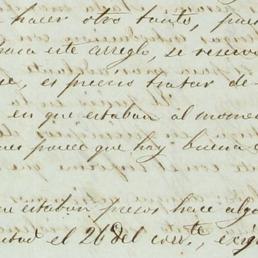 hacer otro tanto, pues
para este arreglo, se reserv
es preciso tratar de
en que estaban al momen
parece que hay buena
estaban presos hace algo
el 26 del corr.te, exig